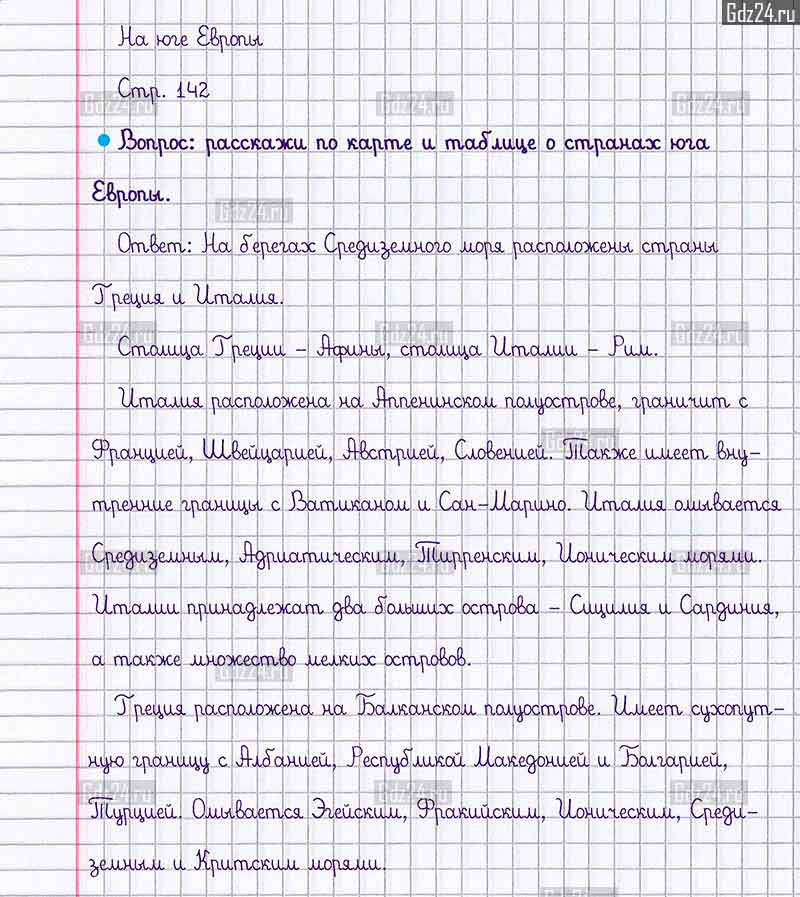 Gdz24.ru
На юге Европы
Стр. 142
Gdz24.ru Gdz24.ru Gdz24.ru
Вопрос: расскажи по карте и таблице о странах юга
Европы.
Gdz24.ru
Ответ: На берегах Средиземного моря расположены страны
Греция и Италия.
Gdz24.ru Gdz24.ru Gdz24.ru
Столица Греции – Афины, столица Италии – Рим.
Италия расположена на Аппенинском полуострове, граничит с
Gdz24.ru
Францией, Швейцарией, Австрией, Словенией. Также имеет вну-
тренние границы с Ватиканом и Сан-Марино. Италия омывается
Средиземным, Адриатическим, Тирренским, Ионическим морями.
Gdz24.ru Gdz24.ru Gdz24.ru
Италии принадлежат два больших острова – Сицилия и Сардиния,
а также множество мелких островов.
Gdz24.ru
Греция расположена на Балканском полуострове. Имеет сухопут-
ную границу с Албанией, Республикой Македонией и Болгарией,
Gdz24.ru Gdz24.ru Gdz24.ru
Турцией. Омывается Эгейским, Фракийским, Ионическим, Среди-
земным и Критским морями.